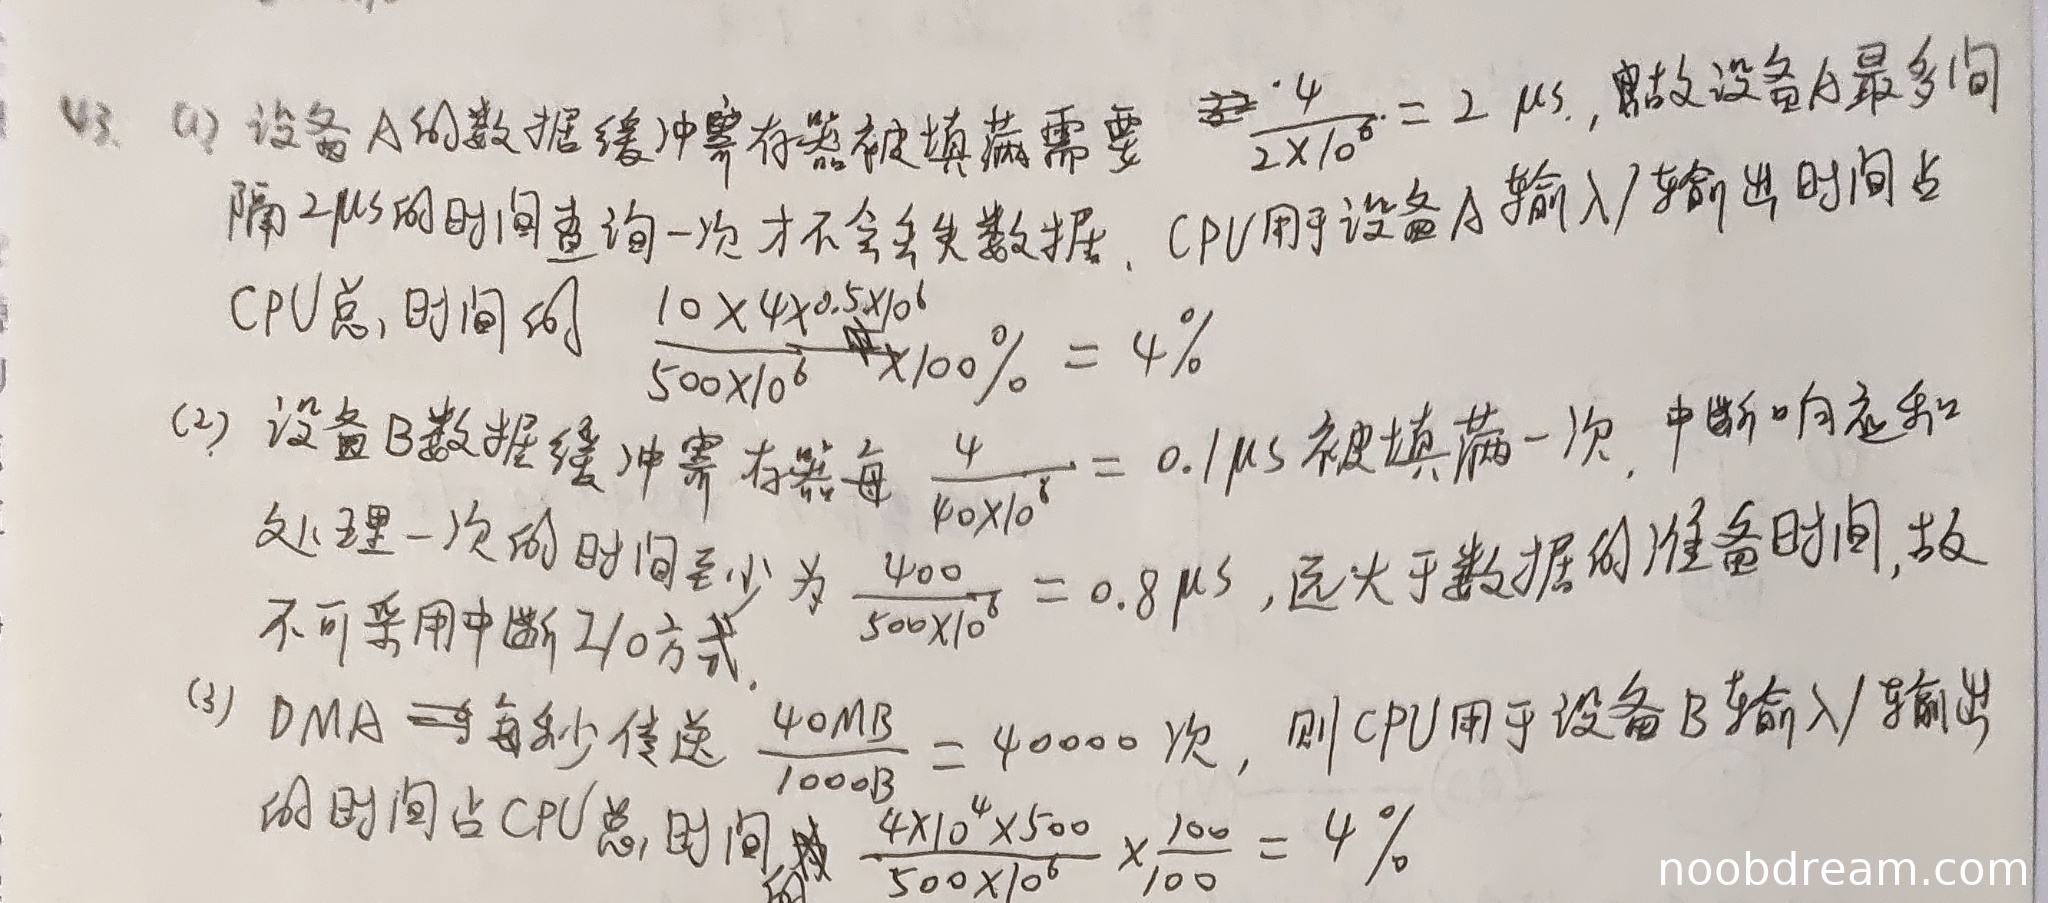 43. (1) 设备A的数据缓冲寄存器被填满需要 4/(2×10⁶) = 2 μs, 故设备A最多间
隔2μs的时间查询一次才不会丢失数据. CPU用于设备A输入/输出时间占
CPU总时间的 (10×4×0.5×10⁶)/(500×10⁶) ×100% = 4%
(2) 设备B数据缓冲寄存器每 4/(40×10⁶) = 0.1μs被填满一次. 中断响应和
处理一次的时间至少为 400/(500×10⁶) = 0.8μs, 远大于数据的准备时间, 故
不可采用中断I/O方式.
(3) DMA 每秒传送 40MB/1000B = 40000次, 则CPU用于设备B输入/输出
的时间占CPU总时间的 (4×10⁴×500)/(500×10⁶) × 100/100 = 4%
noobdream.com